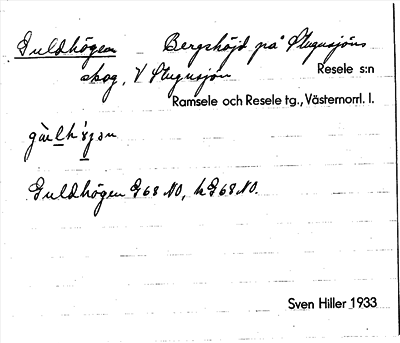 Guldhögen Bergshöjd på Stugusjöns
skog, V Stugusjön Resele s:n
Ramsele och Resele tg., Västernorrl. l.
Guldhögen G68 NO, hG68NO.
Sven Hiller 1933